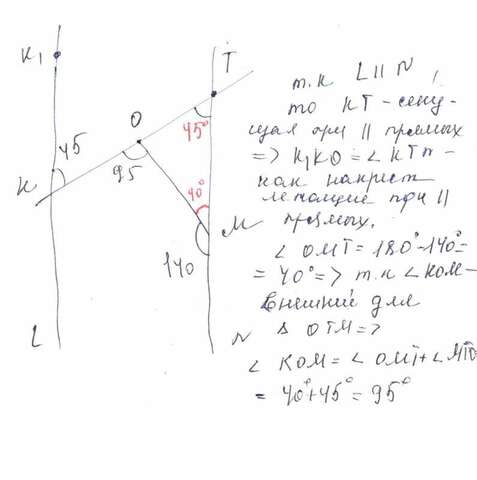 K₁
T
45
O
45°
K
95
40°
M
140
L
N
т.к L || N,
то KT-секу-
щая при || прямых
=> K₁KO = ∠ KTM-
как накрест
лежащие при ||
прямых.
∠ OMT = 180°-140°=
= 40° => т.к ∠KOM-
внешний для
Δ OTM =>
∠ KOM = ∠ OMT + ∠ MTO
= 40°+45° = 95°